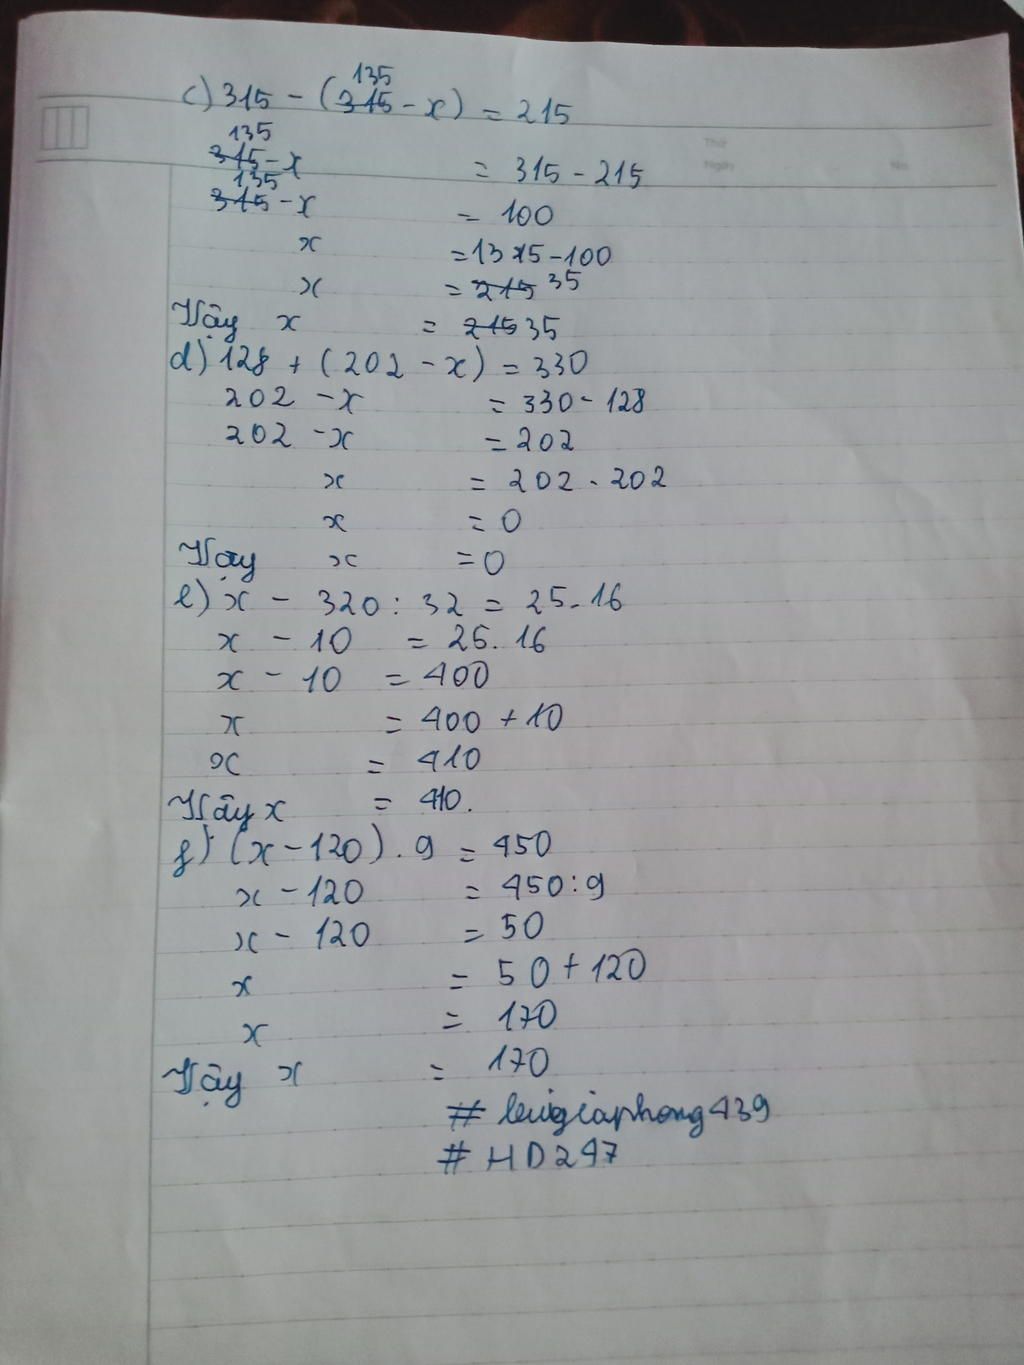 135
c) 315 - (315 - x) = 215
135
315 - x = 315 - 215
135
315 - x = 100
x = 135 - 100
x = 215 35
Vậy x = 215 35
d) 128 + (202 - x) = 330
202 - x = 330 - 128
202 - x = 202
x = 202 - 202
x = 0
Vậy x = 0
e) x - 320 : 32 = 25 . 16
x - 10 = 25 . 16
x - 10 = 400
x = 400 + 10
x = 410
Vậy x = 410.
f) (x - 120) . 9 = 450
x - 120 = 450 : 9
x - 120 = 50
x = 50 + 120
x = 170
Vậy x = 170
# HD247